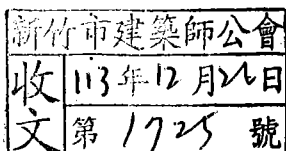 新竹市建築師公會
收文
113年12月26日
第1725號